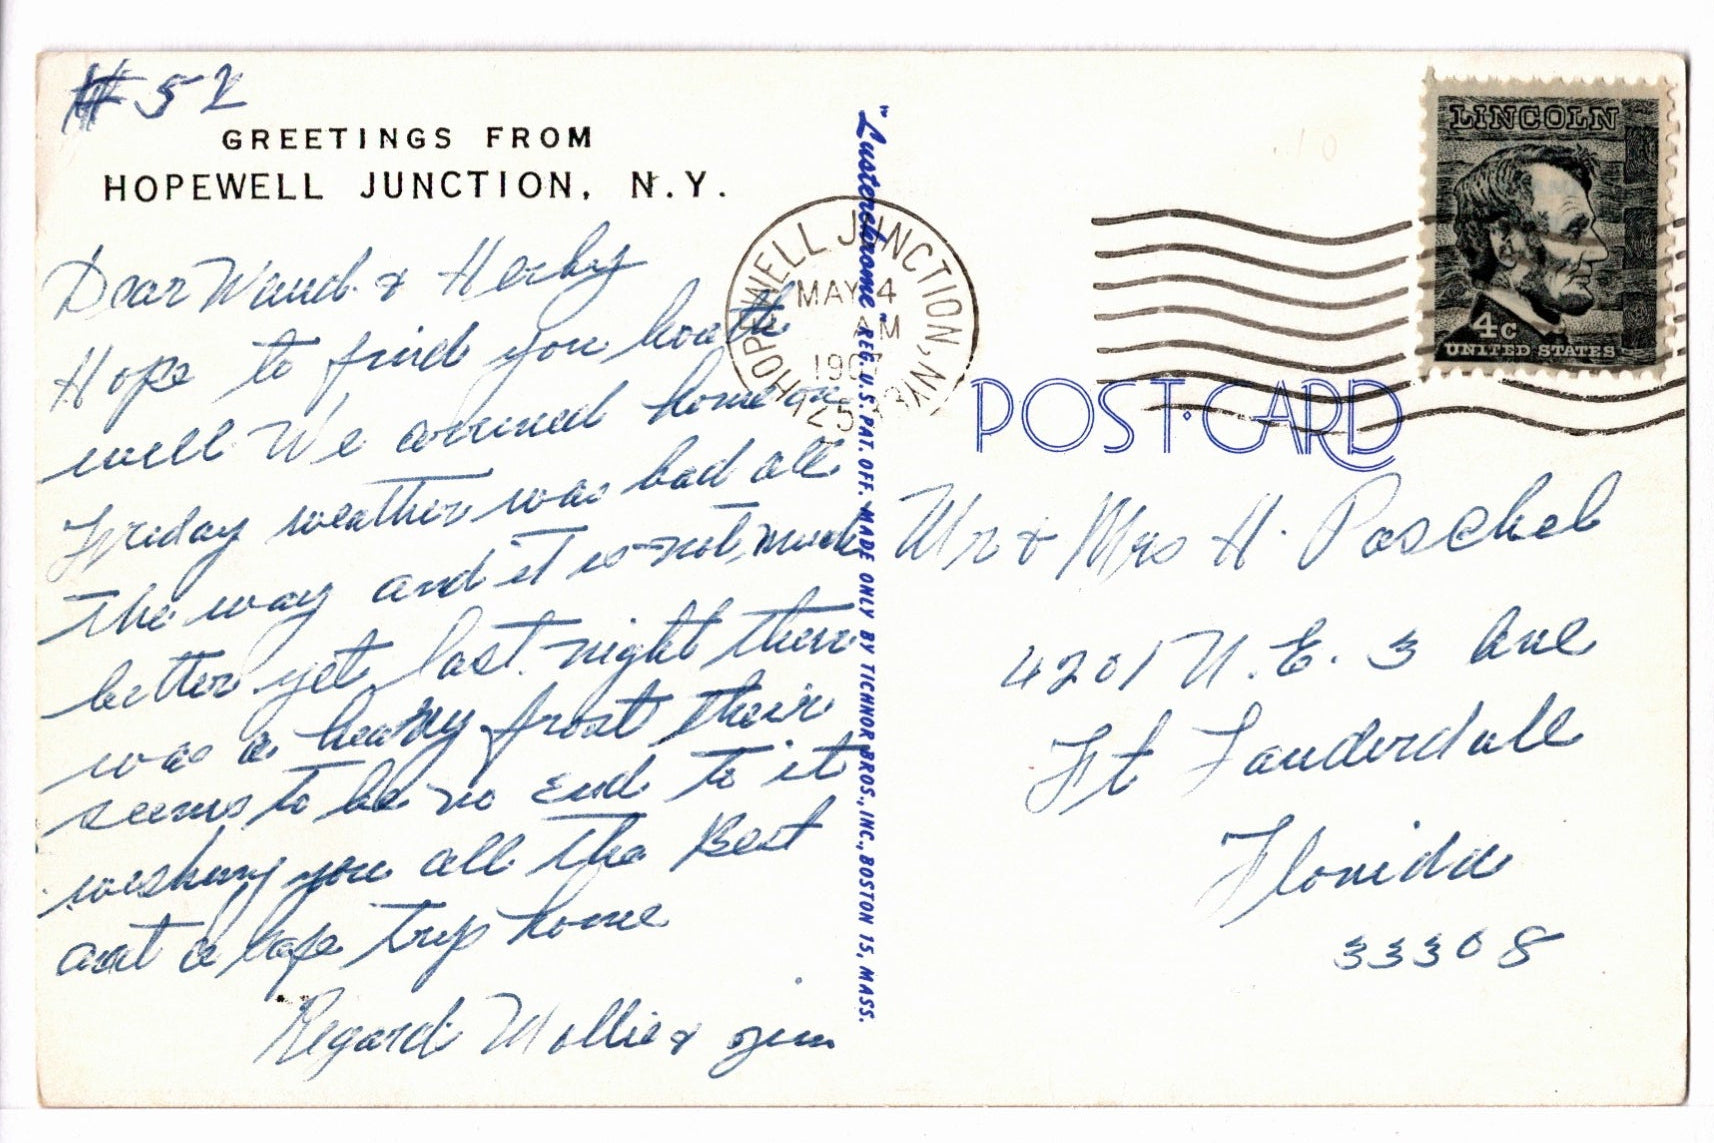 # 52
GREETINGS FROM
HOPEWELL JUNCTION, N.Y.
Dear & Herby
Hope to find you boath
well We arrived home on
Friday weather was bad all
the way and it is not much
better yet last night there
was a heavy frost their
seems to be no End to it
wishing you all the Best
and a safe trip home
Regard Mollie & Jim
"Lusterchrome" REG. U.S. PAT. OFF. MADE ONLY BY TICHNOR BROS., INC., BOSTON 15, MASS.
HOPEWELL JUNCTION, N.Y.
MAY 4
AM
1967
125
LINCOLN
4c
UNITED STATES
POST CARD
Mr & Mrs H. Paschel
4201 N.E. 3 Ave
Ft Lauderdall
Florida
33308